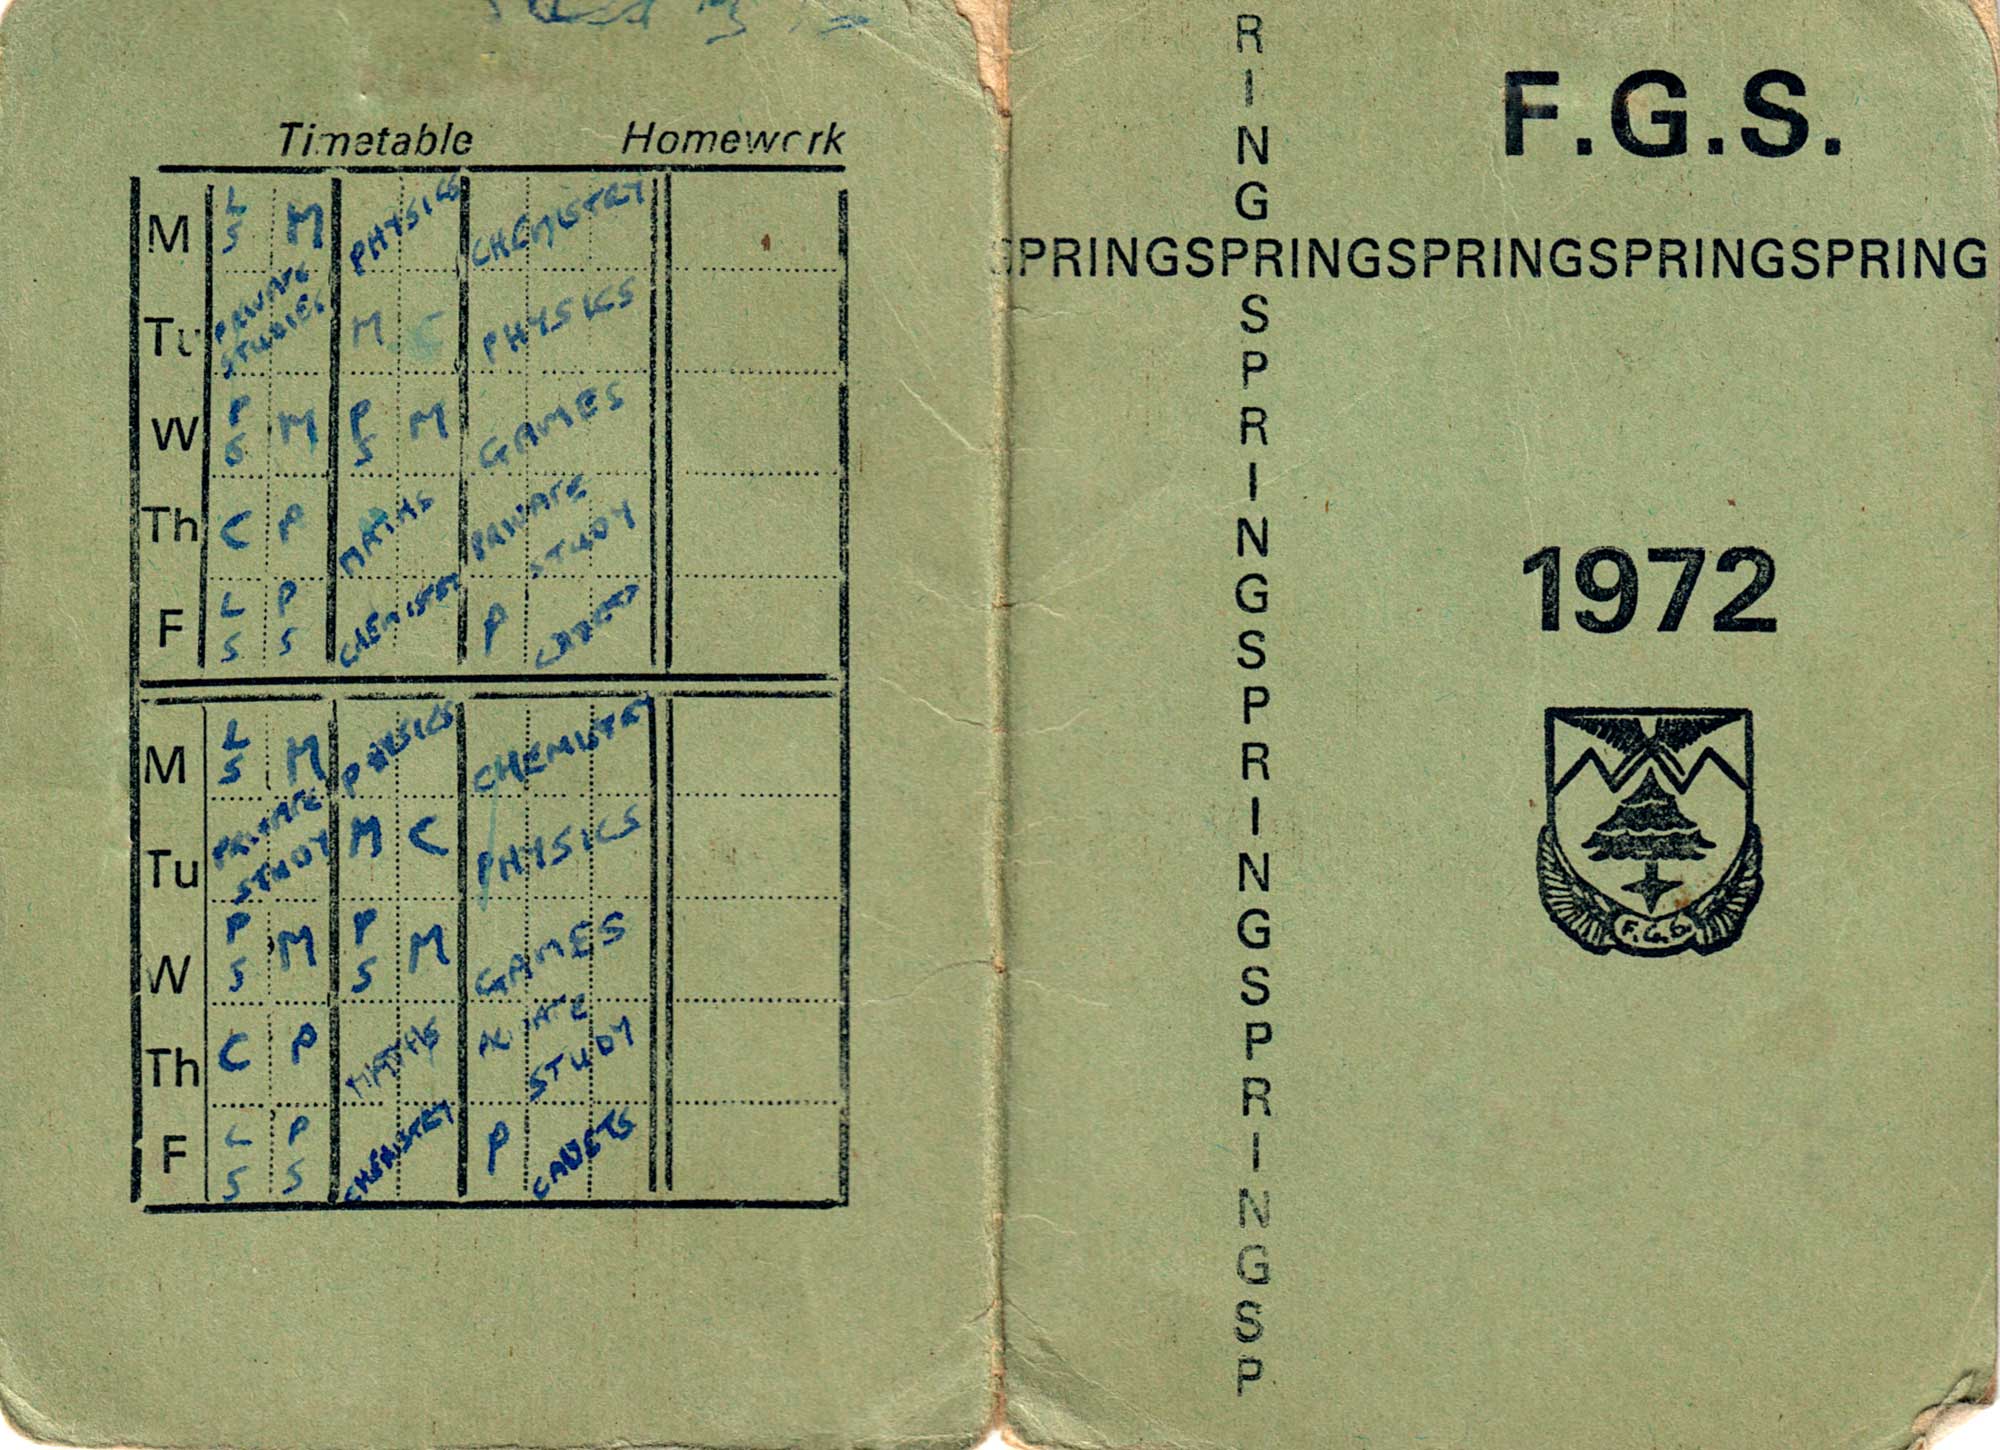 Timetable Homework
M L S M PHYSICS CHEMISTRY
Tu PRIVATE STUDIES M C PHYSICS
W P S M P S M GAMES
Th C P MATHS PRIVATE STUDY
F L S P S CHEMISTRY P CADETS
M L S M PHYSICS CHEMISTRY
Tu PRIVATE STUDY M C PHYSICS
W P S M P S M GAMES
Th C P MATHS PRIVATE STUDY
F L S P S CHEMISTRY P CADETS
RINGSPRINGSPRINGSPRINGSP
F.G.S.
SPRINGSPRINGSPRINGSPRINGSPRING
1972
F.G.S